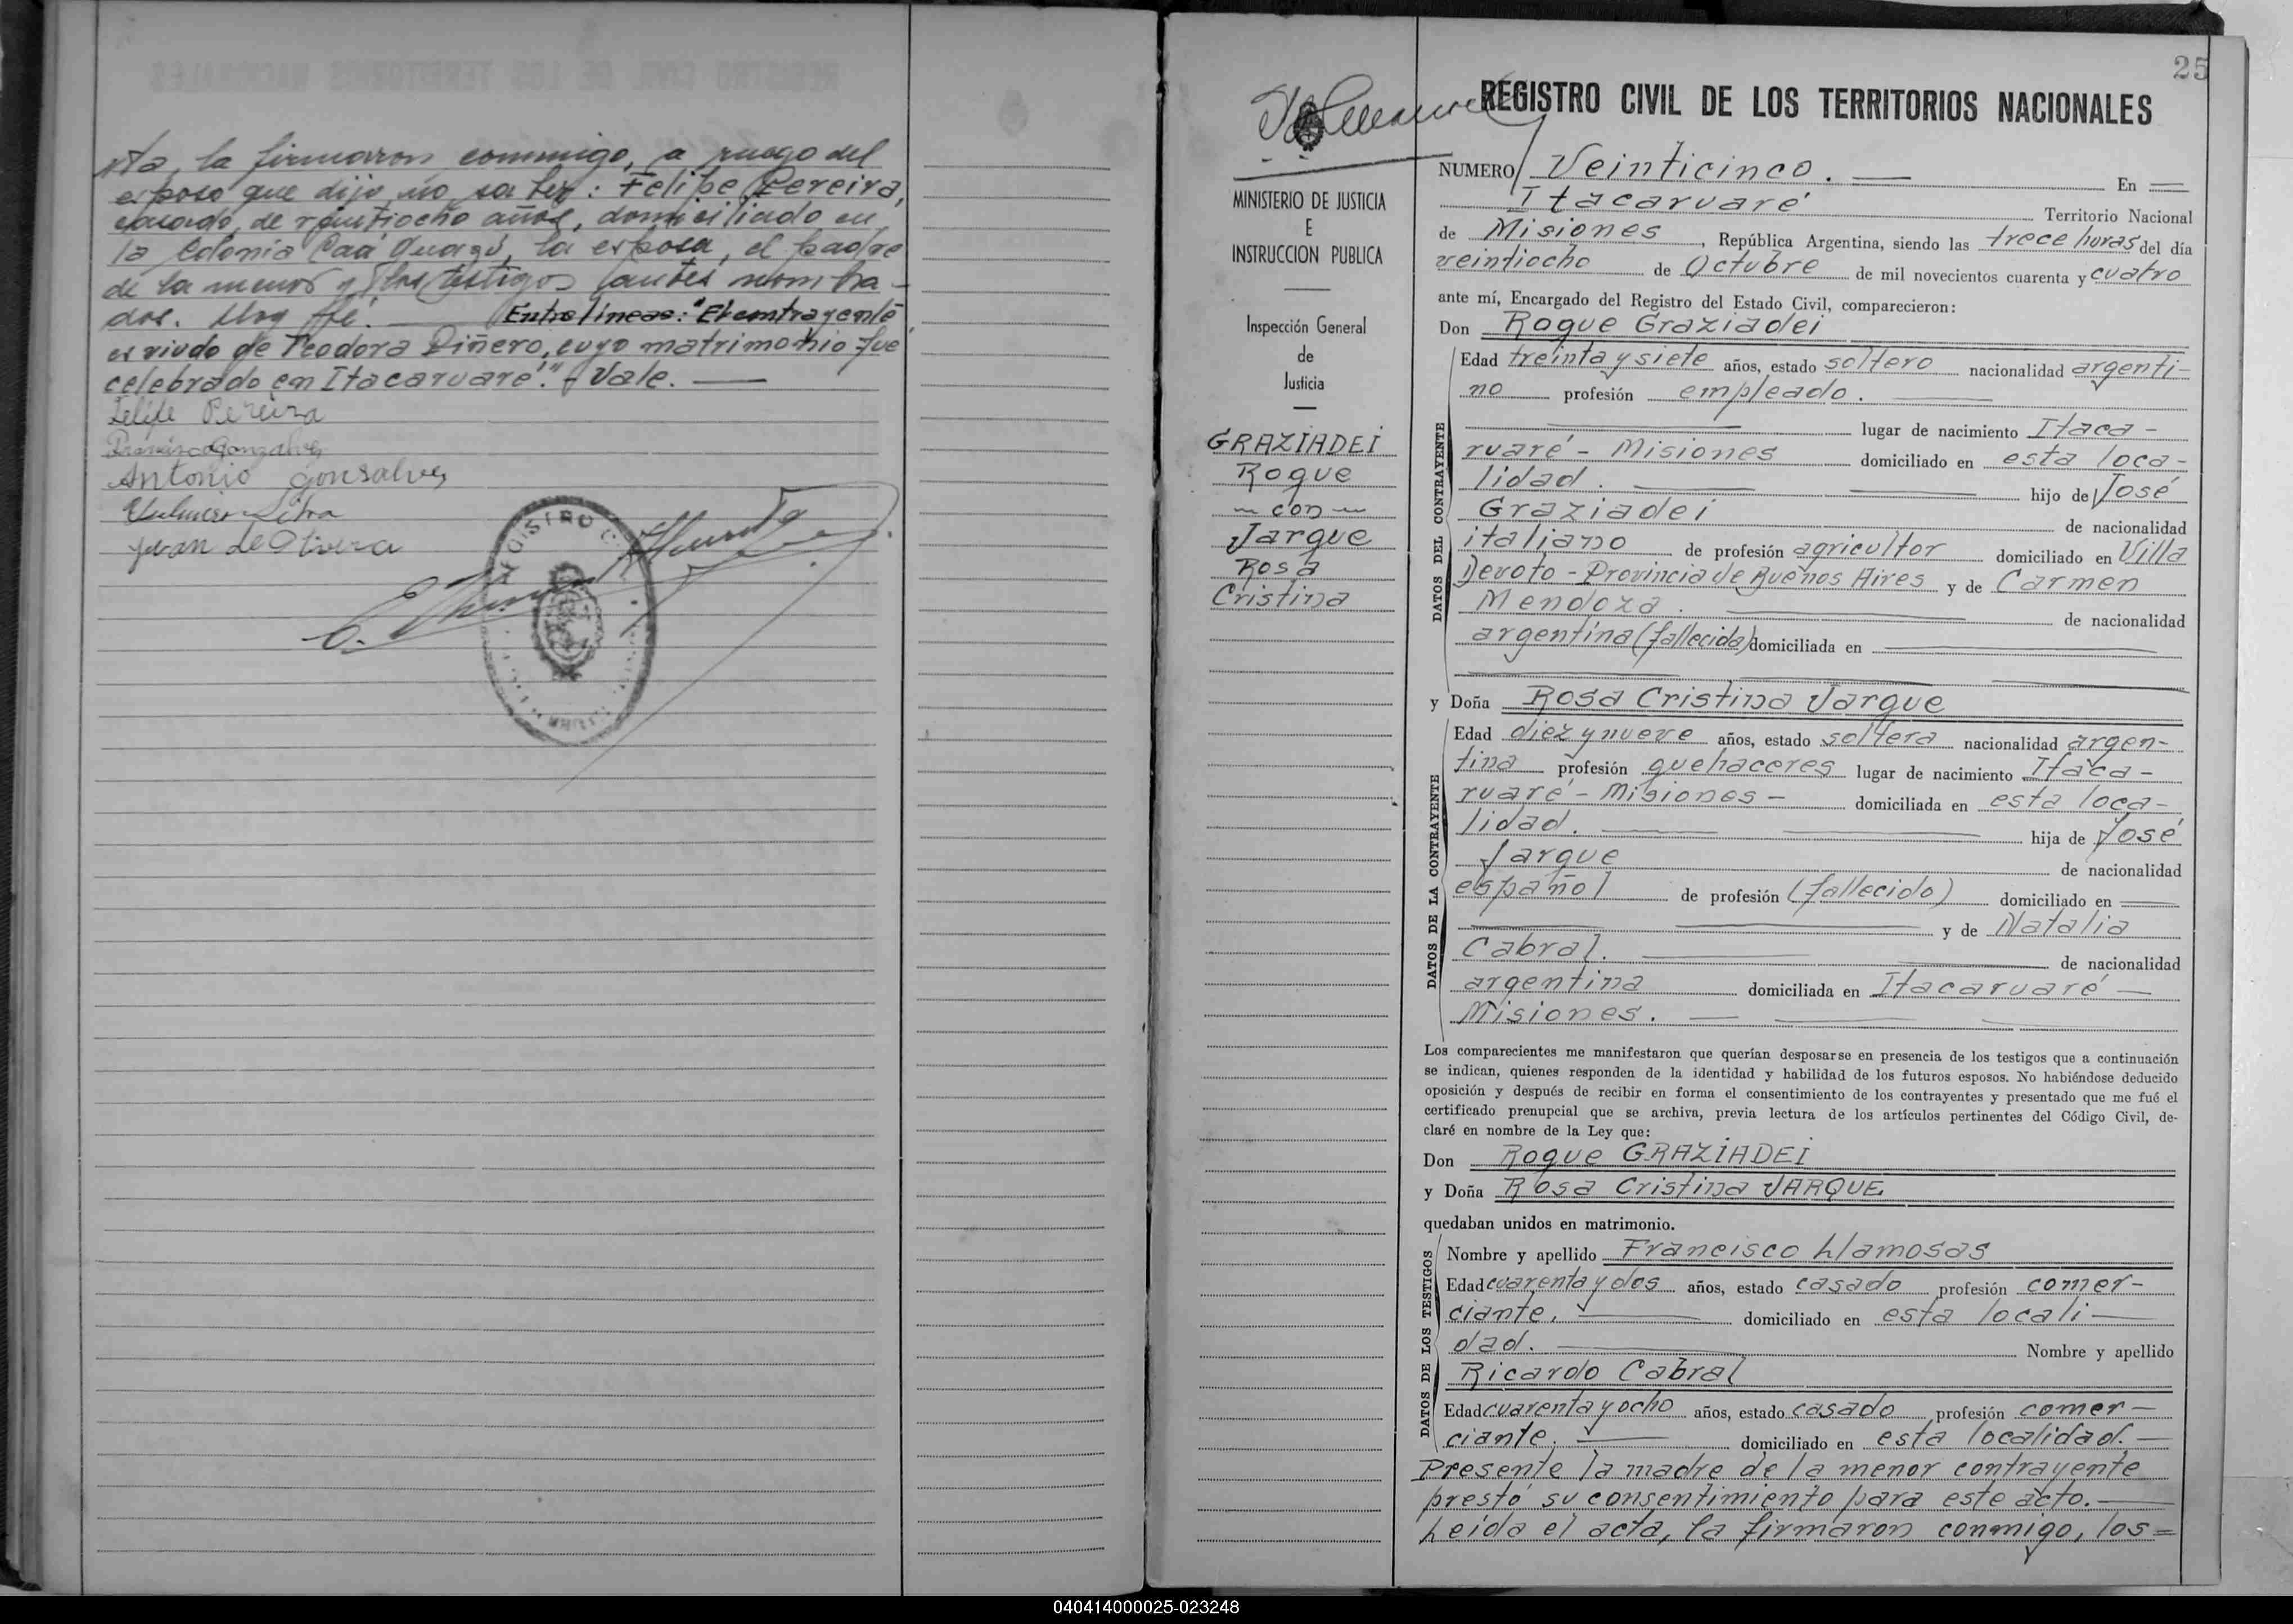 ta, la firmaron conmigo, a ruego del
esposo que dijo no saber: Felipe Pereira,
casado, de veintiocho años, domiciliado en
la Colonia Caá Guazú, la esposa, el padre
de la menor y los testigos antes nombra-
dos. Doy fé. Entre líneas: "El contrayente
es viudo de Teodora Piñero, cuyo matrimonio fue
celebrado en Itacaruaré." - Vale.
Felipe Pereira
Gonzalves
Antonio gonsalves
Juan de Olivera
25
REGISTRO CIVIL DE LOS TERRITORIOS NACIONALES
MINISTERIO DE JUSTICIA
E
INSTRUCCION PUBLICA
Inspección General
de
Justicia
GRAZIADEI
Roque
con
Jarque
Rosa
Cristina
NUMERO Veinticinco. En
Itacaruaré Territorio Nacional
de Misiones, República Argentina, siendo las trece horas del día
veintiocho de Octubre de mil novecientos cuarenta y cuatro
ante mí, Encargado del Registro del Estado Civil, comparecieron:
Don Roque Graziadei
DATOS DEL CONTRAYENTE
Edad treinta y siete años, estado soltero nacionalidad argenti-
no profesión empleado.
lugar de nacimiento Itaca-
ruaré - Misiones domiciliado en esta loca-
lidad. hijo de José
Graziadei de nacionalidad
italiano de profesión agricultor domiciliado en Villa
Devoto - Provincia de Buenos Aires y de Carmen
Mendoza. de nacionalidad
argentina (fallecida) domiciliada en
y Doña Rosa Cristina Jarque
DATOS DE LA CONTRAYENTE
Edad diez y nueve años, estado soltera nacionalidad argen-
tina profesión quehaceres lugar de nacimiento Itaca-
ruaré - Misiones - domiciliada en esta loca-
lidad. hija de José
Jarque de nacionalidad
español de profesión (fallecido) domiciliado en
y de Natalia
Cabral. de nacionalidad
argentina domiciliada en Itacaruaré -
Misiones.
Los comparecientes me manifestaron que querían desposarse en presencia de los testigos que a continuación
se indican, quienes responden de la identidad y habilidad de los futuros esposos. No habiéndose deducido
oposición y después de recibir en forma el consentimiento de los contrayentes y presentado que me fué el
certificado prenupcial que se archiva, previa lectura de los artículos pertinentes del Código Civil, de-
claré en nombre de la Ley que:
Don Roque GRAZIADEI
y Doña Rosa Cristina JARQUE.
quedaban unidos en matrimonio.
DATOS DE LOS TESTIGOS
Nombre y apellido Francisco Llamosas
Edad cuarenta y dos años, estado casado profesión comer-
ciante. domiciliado en esta locali-
dad. Nombre y apellido
Ricardo Cabral
Edad cuarenta y ocho años, estado casado profesión comer-
ciante. domiciliado en esta localidad.
Presente la madre de la menor contrayente
prestó su consentimiento para este acto.
Leída el acta, la firmaron conmigo, los=
040414000025-023248